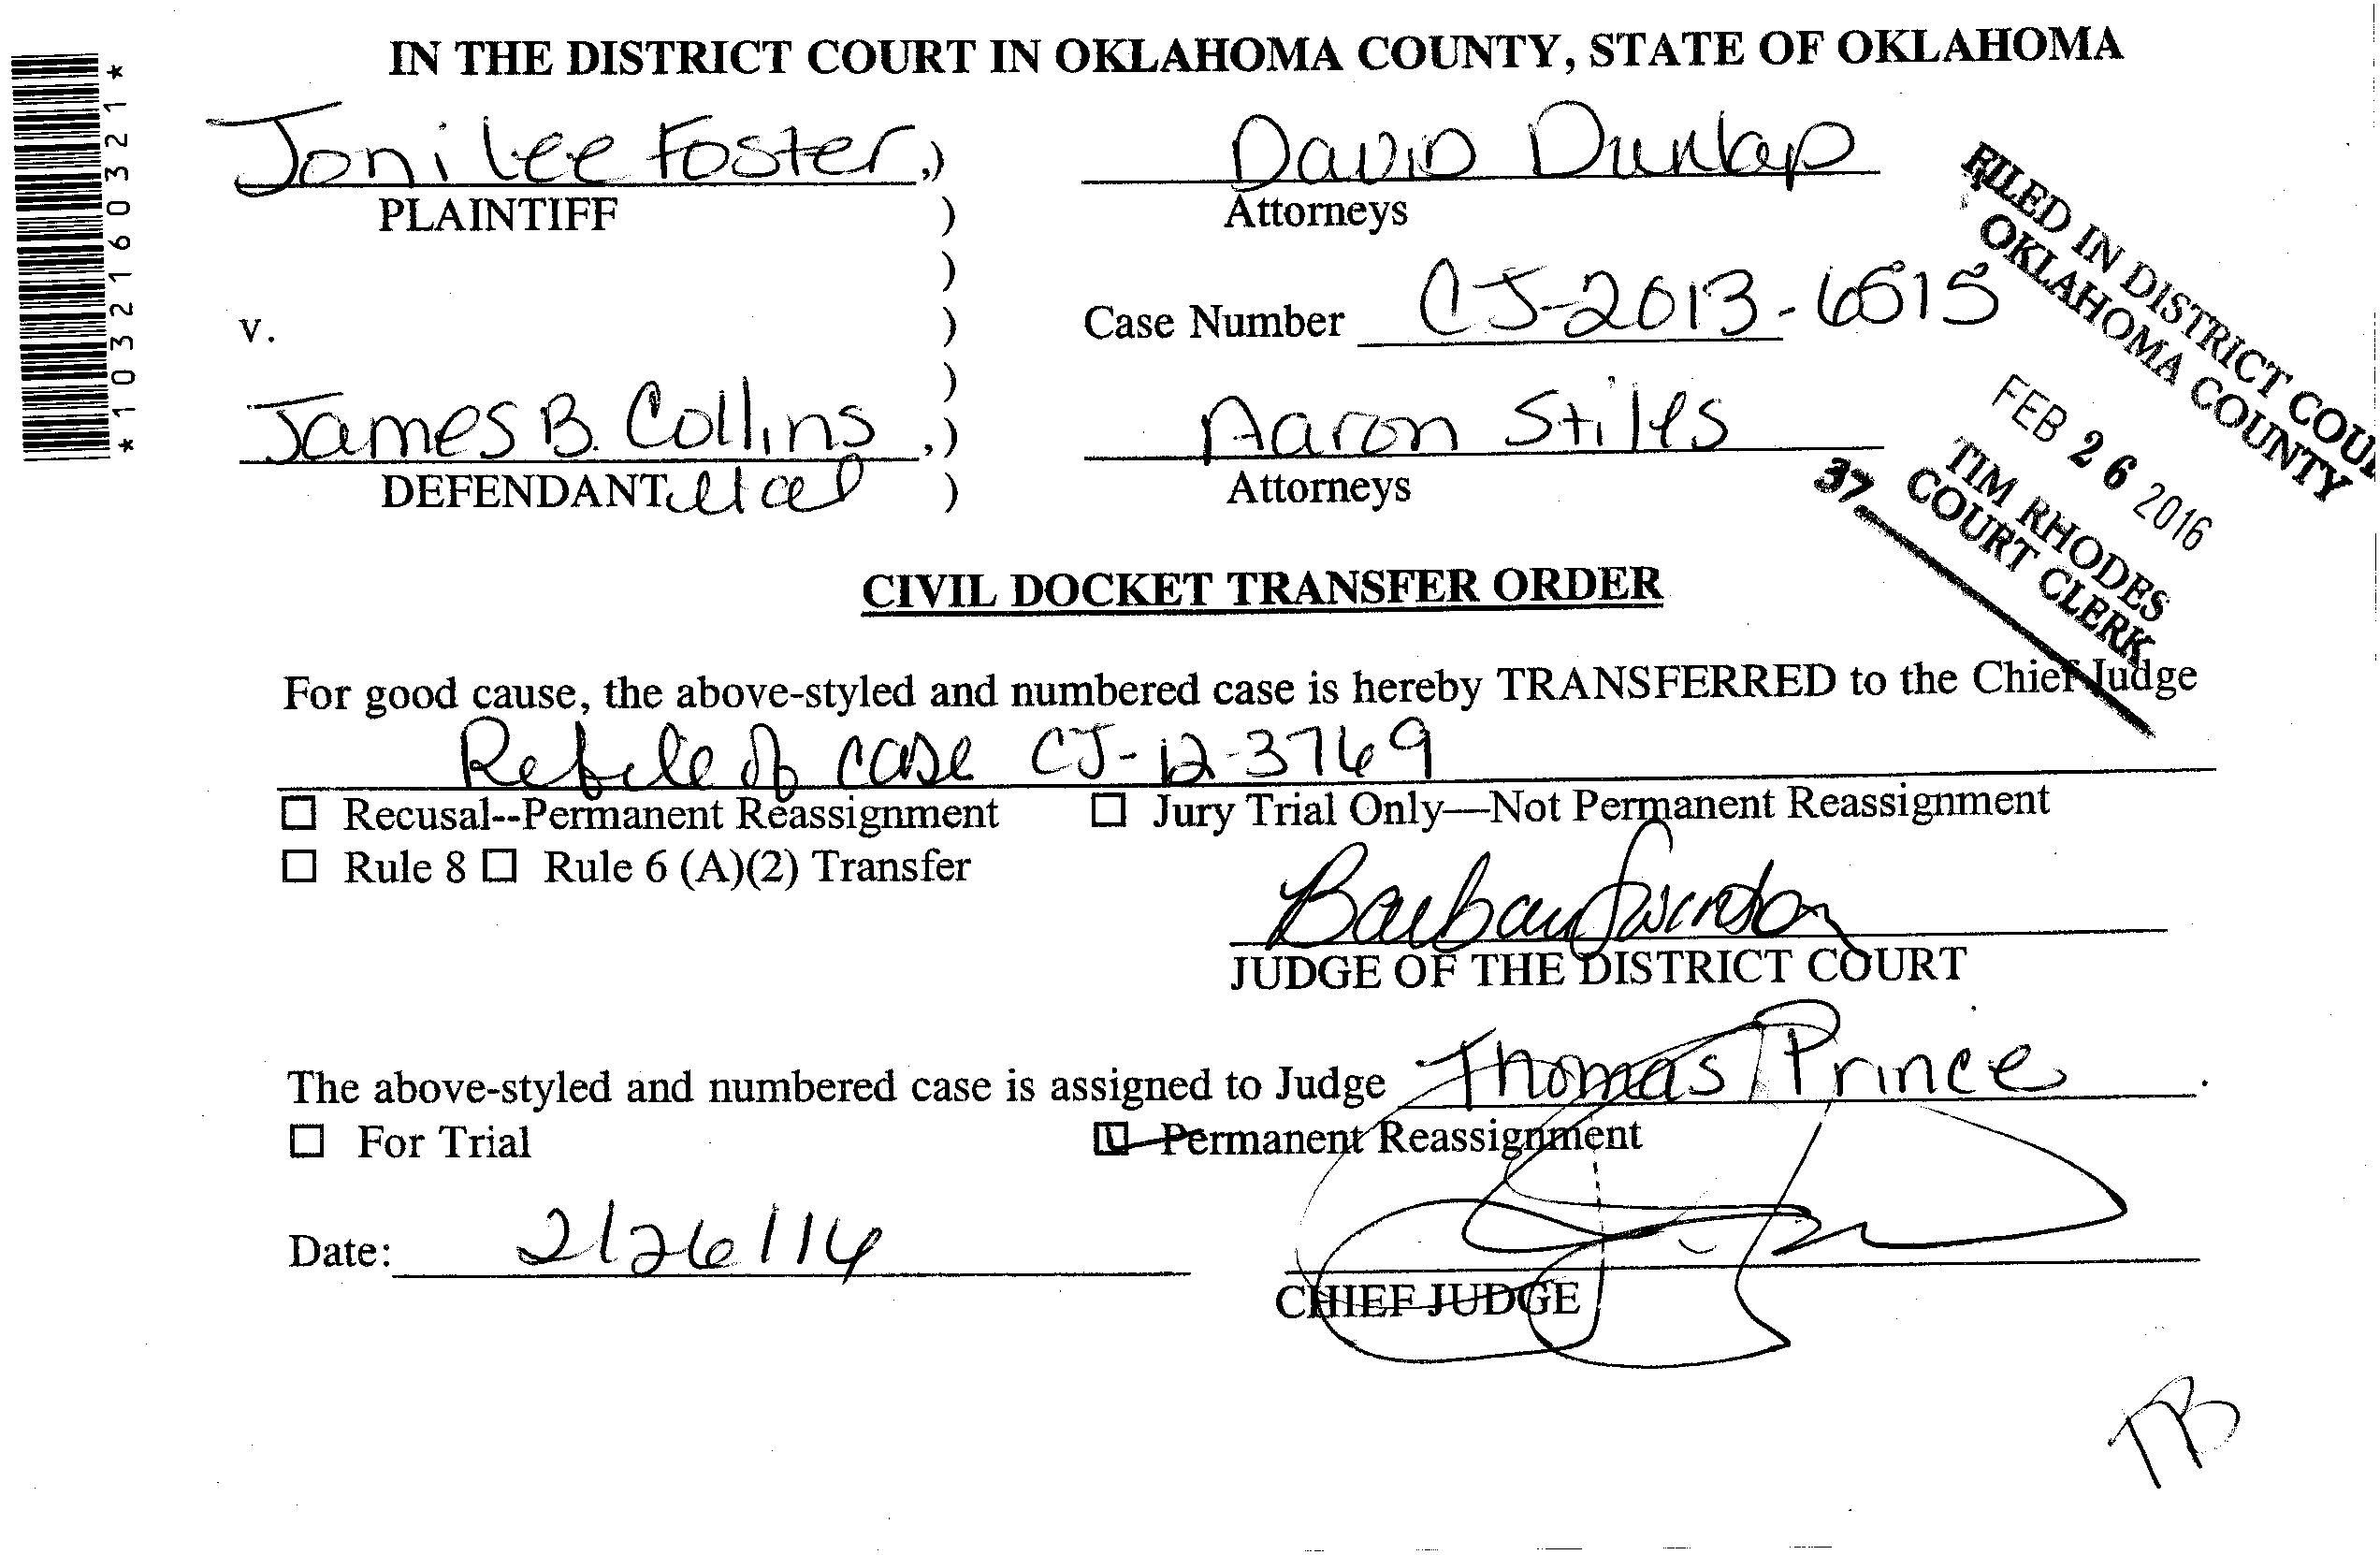 IN THE DISTRICT COURT IN OKLAHOMA COUNTY, STATE OF OKLAHOMA
*1032160321*
Joni Lee Foster,) David Dunlap
PLAINTIFF ) Attorneys
)
v. ) Case Number CJ-2013-6515
)
James B. Collins ,) Aaron Stiles
DEFENDANT et al ) Attorneys
FILED IN DISTRICT COU
OKLAHOMA COUNTY
FEB 26 2016
TIM RHODES
COURT CLERK
37
CIVIL DOCKET TRANSFER ORDER
For good cause, the above-styled and numbered case is hereby TRANSFERRED to the Chief Judge
Refile of case CJ-12-3769
☐ Recusal--Permanent Reassignment ☐ Jury Trial Only—Not Permanent Reassignment
☐ Rule 8 ☐ Rule 6 (A)(2) Transfer
Barbara Swinton
JUDGE OF THE DISTRICT COURT
The above-styled and numbered case is assigned to Judge Thomas Prince.
☐ For Trial ☑ Permanent Reassignment
Date: 2/26/16
CHIEF JUDGE